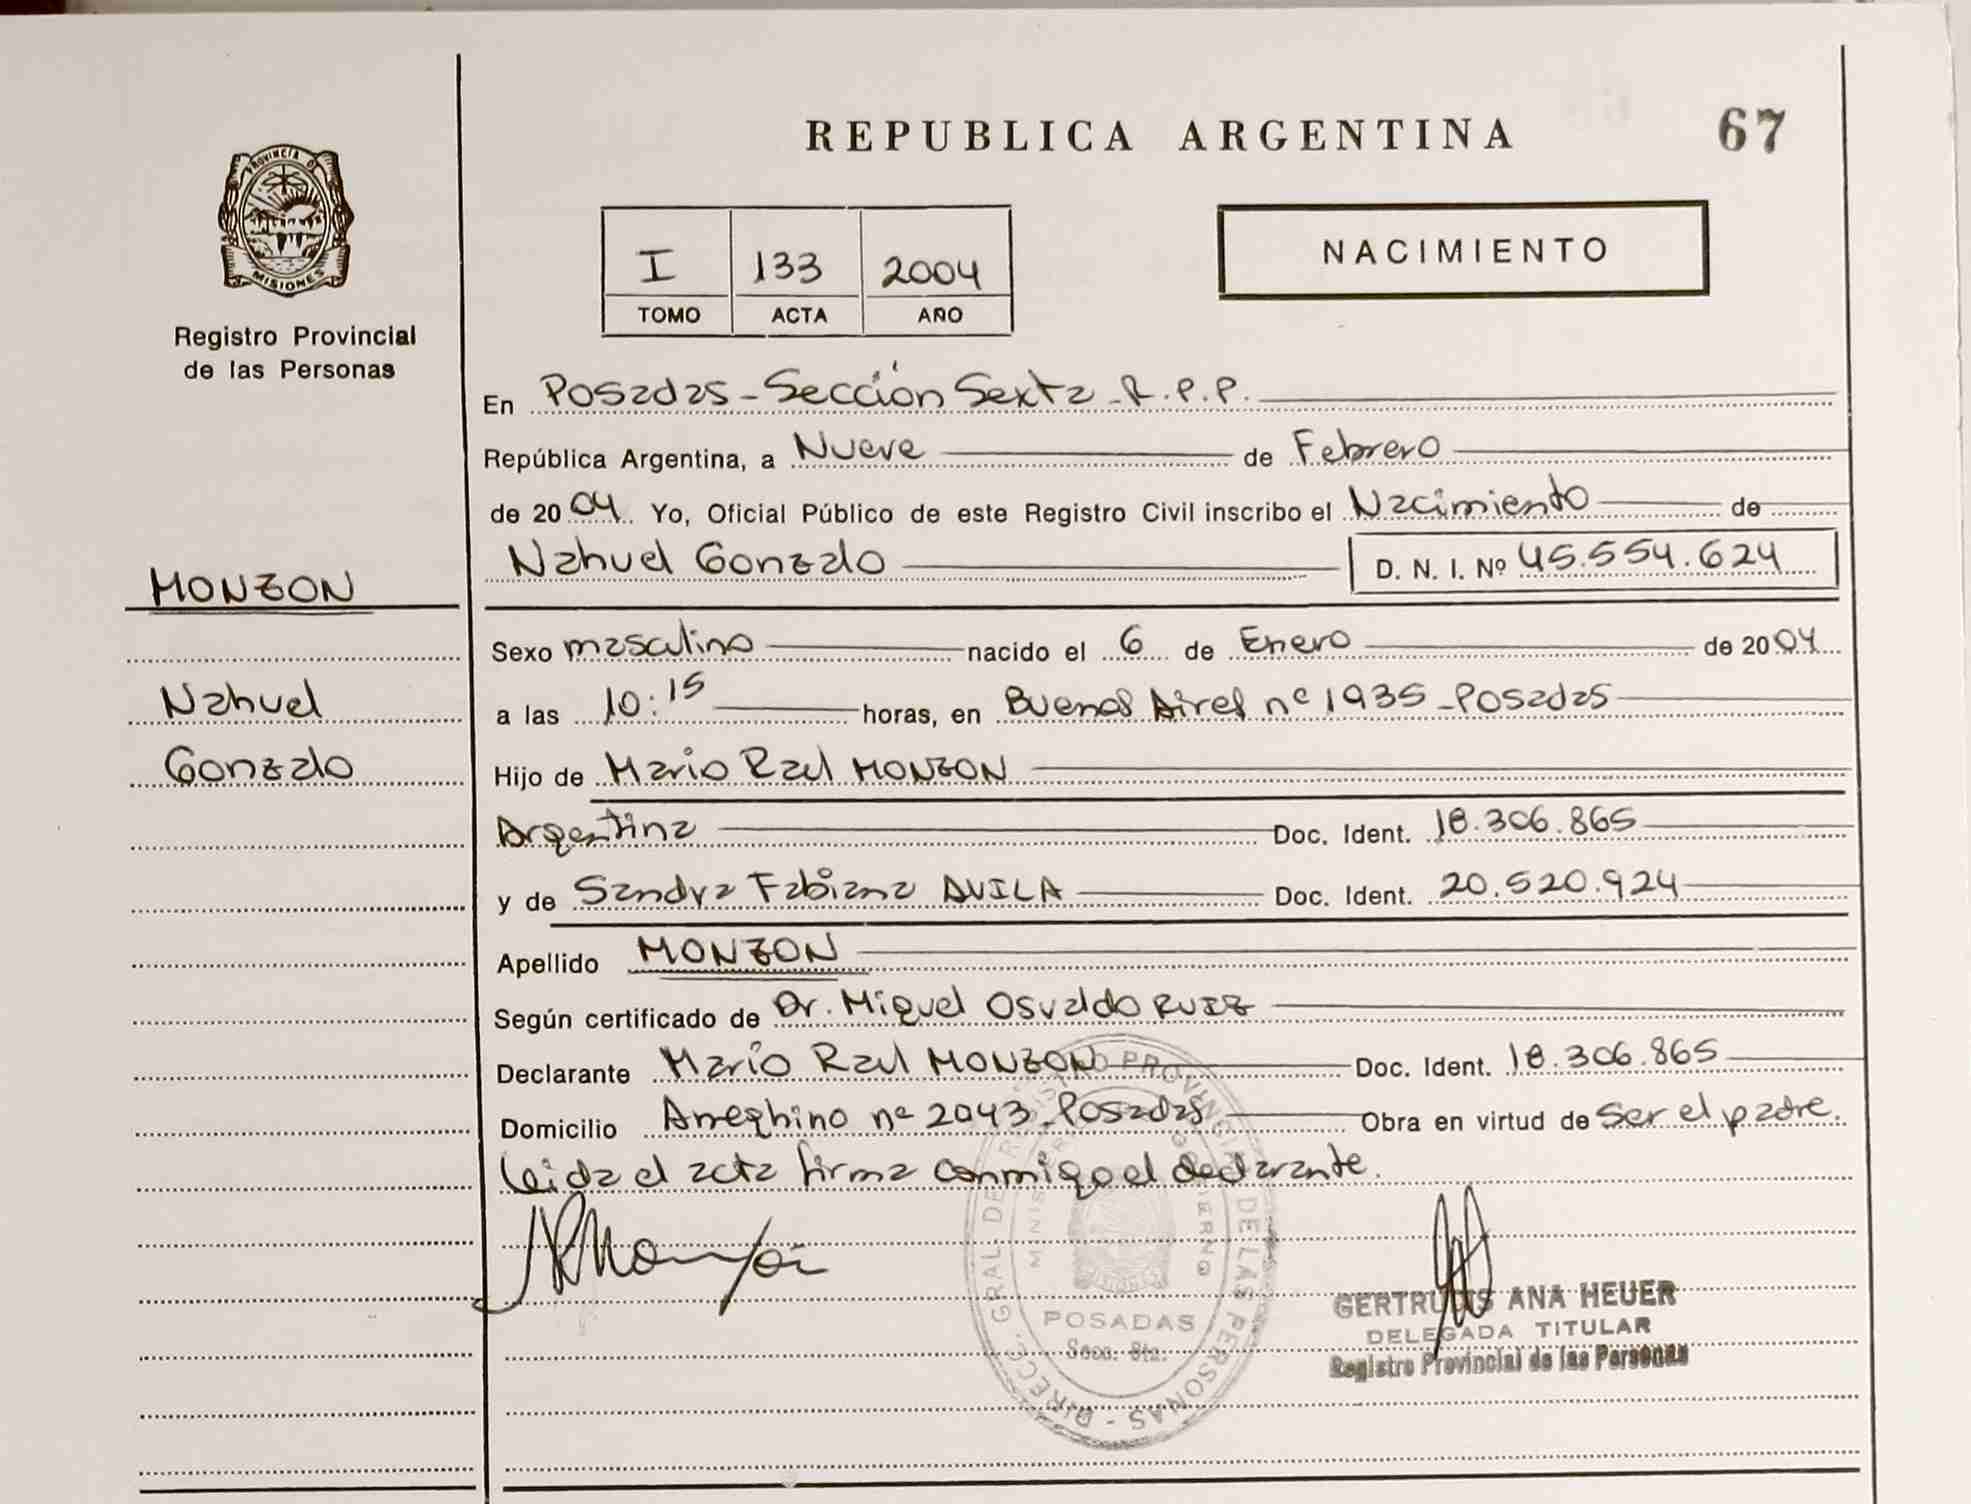 REPUBLICA ARGENTINA
67
PROVINCIA DE
MISIONES
Registro Provincial
de las Personas
I 133 2004
TOMO ACTA AÑO
NACIMIENTO
En Posadas - Sección Sexta - R.P.P.
República Argentina, a Nueve de Febrero
de 2004 Yo, Oficial Público de este Registro Civil inscribo el Nacimiento de
Nahuel Gonzalo D. N. I. Nº 45.554.624
MONZON
Nahuel
Gonzalo
Sexo masculino nacido el 6 de Enero de 2004
a las 10:15 horas, en Buenos Aires nº 1935 - Posadas
Hijo de Mario Raul MONZON
Argentina Doc. Ident. 18.306.865
y de Sandra Fabiana AVILA Doc. Ident. 20.520.924
Apellido MONZON
Según certificado de Dr. Miguel Osvaldo RUIZ
Declarante Mario Raul MONZON Doc. Ident. 18.306.865
Domicilio Arreghino nº 2043 - Posadas Obra en virtud de ser el padre.
leida el acta firma conmigo el declarante.
DIRECC. GRAL. DE REGISTRO PROVINCIAL DE LAS PERSONAS
POSADAS
Secc. 6ta.
GERTRUDIS ANA HEUER
DELEGADA TITULAR
Registro Provincial de las Personas